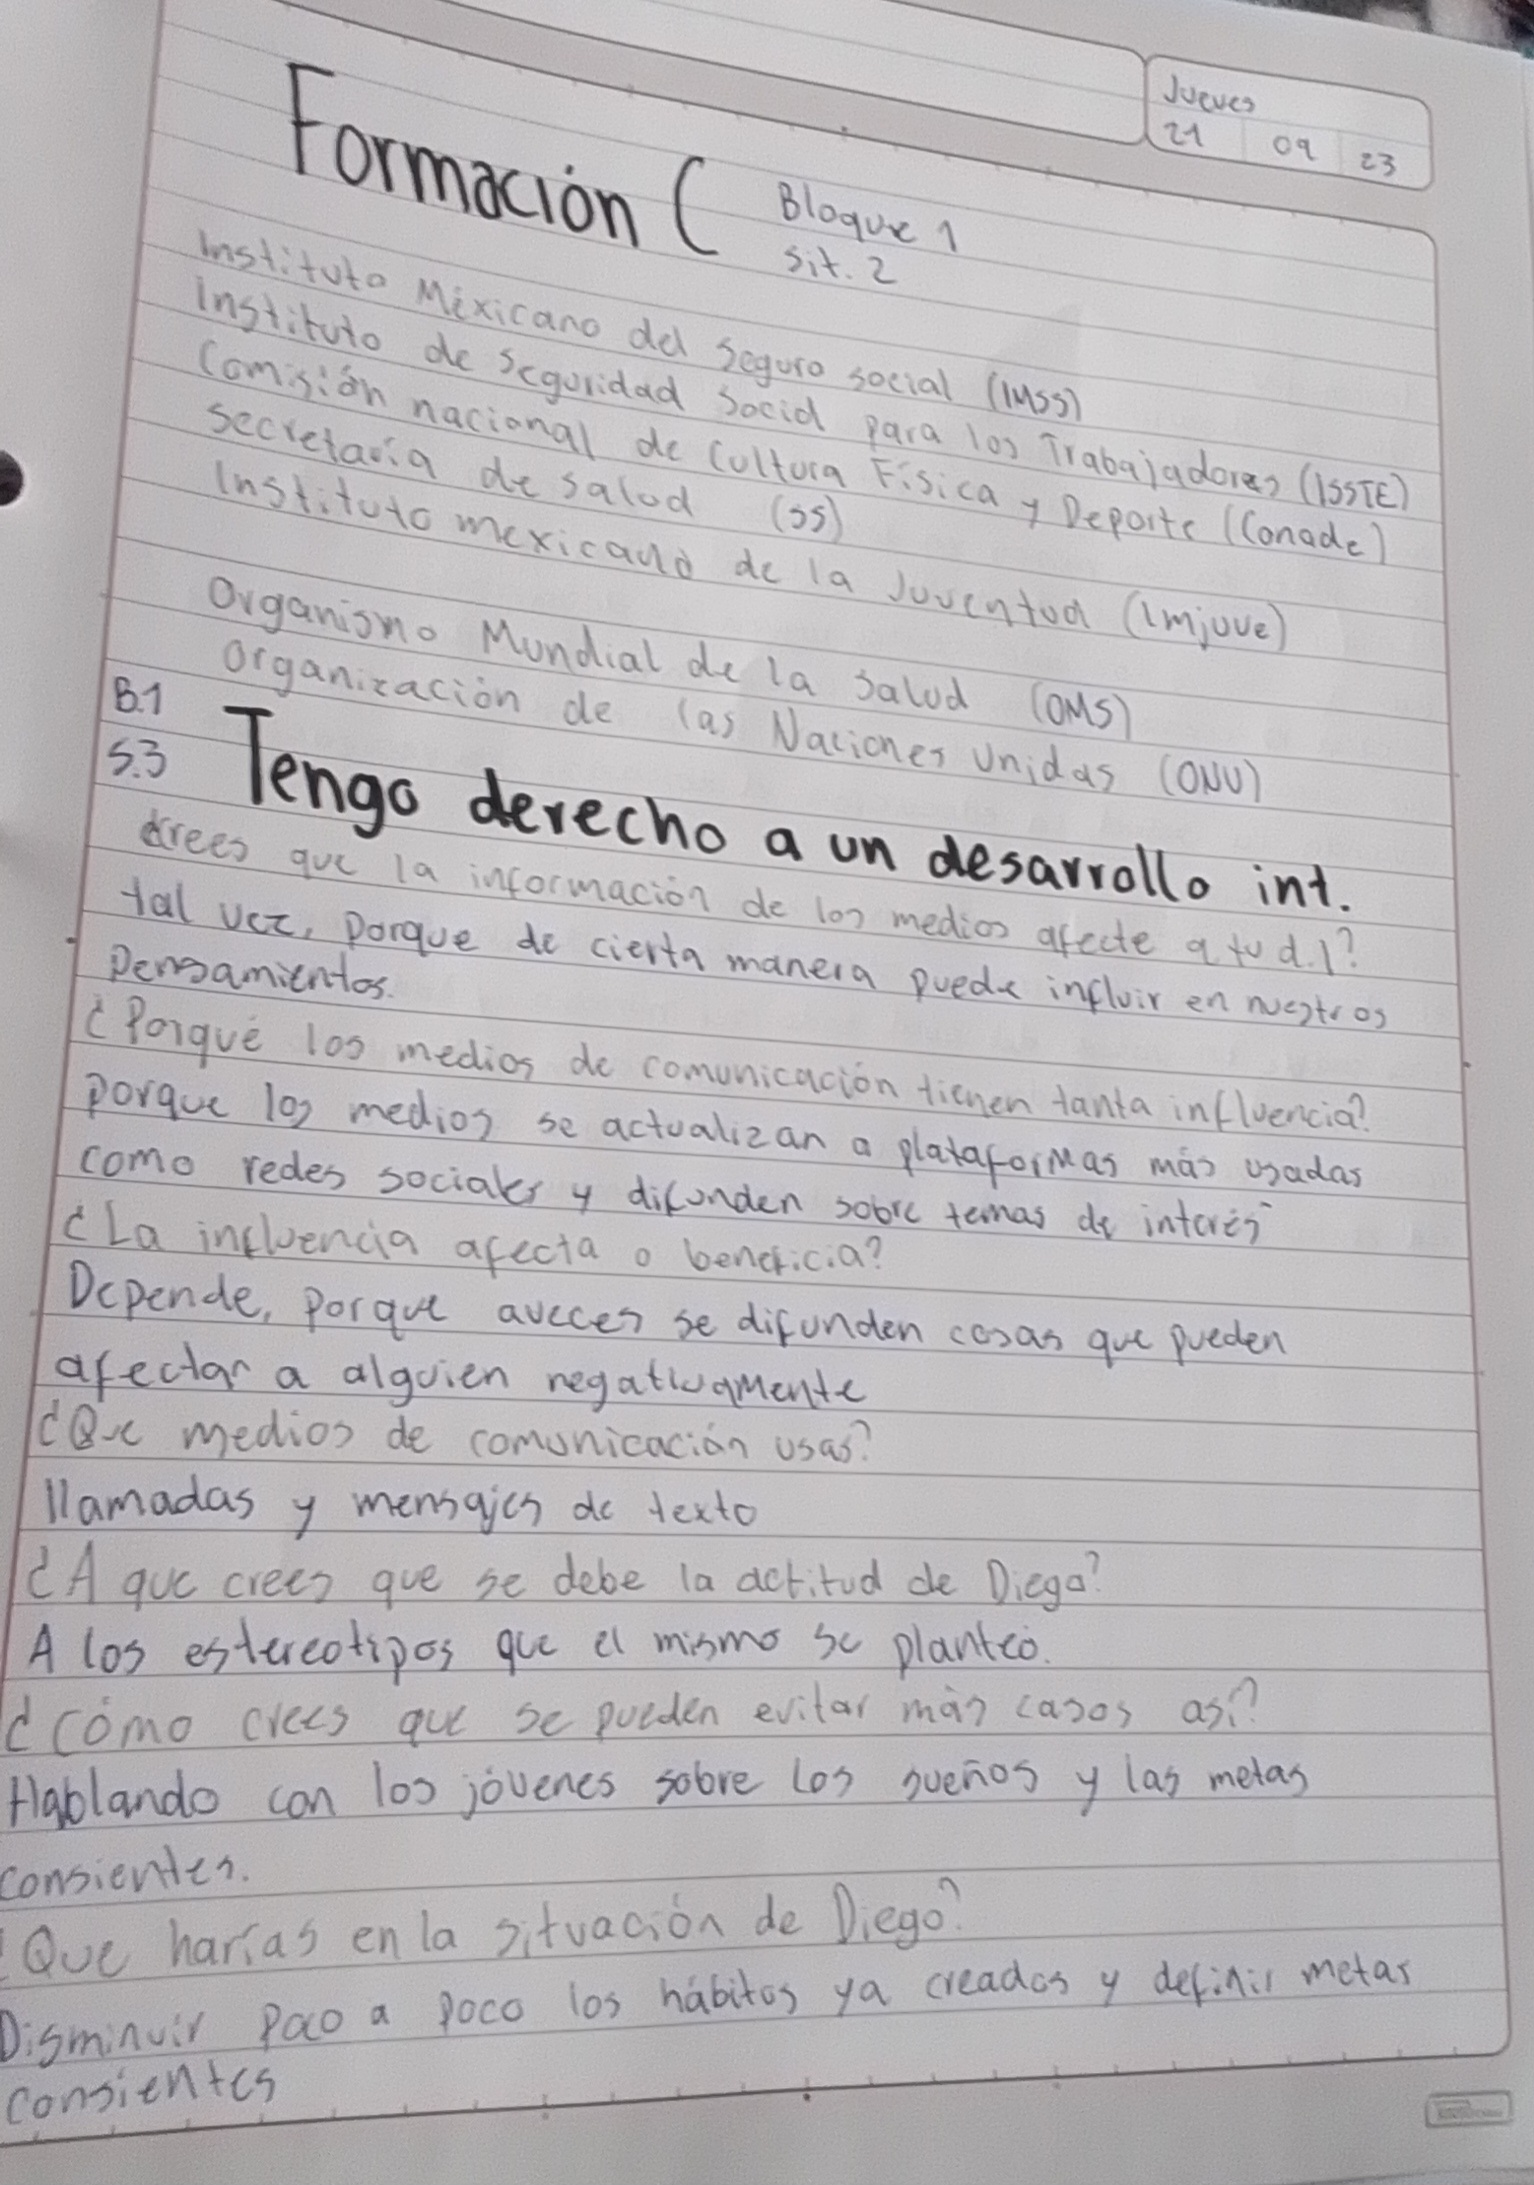 Jueves
21 09 23
Formación C
Bloque 1
Sit. 2
Instituto Mexicano del seguro social (IMSS)
Instituto de seguridad social para los Trabajadores (ISSTE)
Comisión nacional de Cultura Física y Deporte (Conade)
secretaría de salud (SS)
Instituto mexicano de la Juventud (Imjuve)
Organismo Mundial de la salud (OMS)
Organización de las Naciones Unidas (ONU)
B.1
S.3
Tengo derecho a un desarrollo int.
crees que la información de los medios afecte a tu d.I?
tal vez, porque de cierta manera puede influir en nuestros
Pensamientos.
¿Porqué los medios de comunicación tienen tanta influencia?
porque los medios se actualizan a plataformas más usadas
como redes sociales y difunden sobre temas de interés
¿La influencia afecta o beneficia?
Depende, porque aveces se difunden cosas que pueden
afectar a alguien negativamente
¿Que medios de comunicación usas?
llamadas y mensajes de texto
¿A que crees que se debe la actitud de Diego?
A los estereotipos que el mismo se planteó.
¿Cómo crees que se pueden evitar más casos así?
Hablando con los jóvenes sobre los sueños y las metas
consientes.
¿Que harías en la situación de Diego?
Disminuir poco a poco los hábitos ya creados y definir metas
consientes